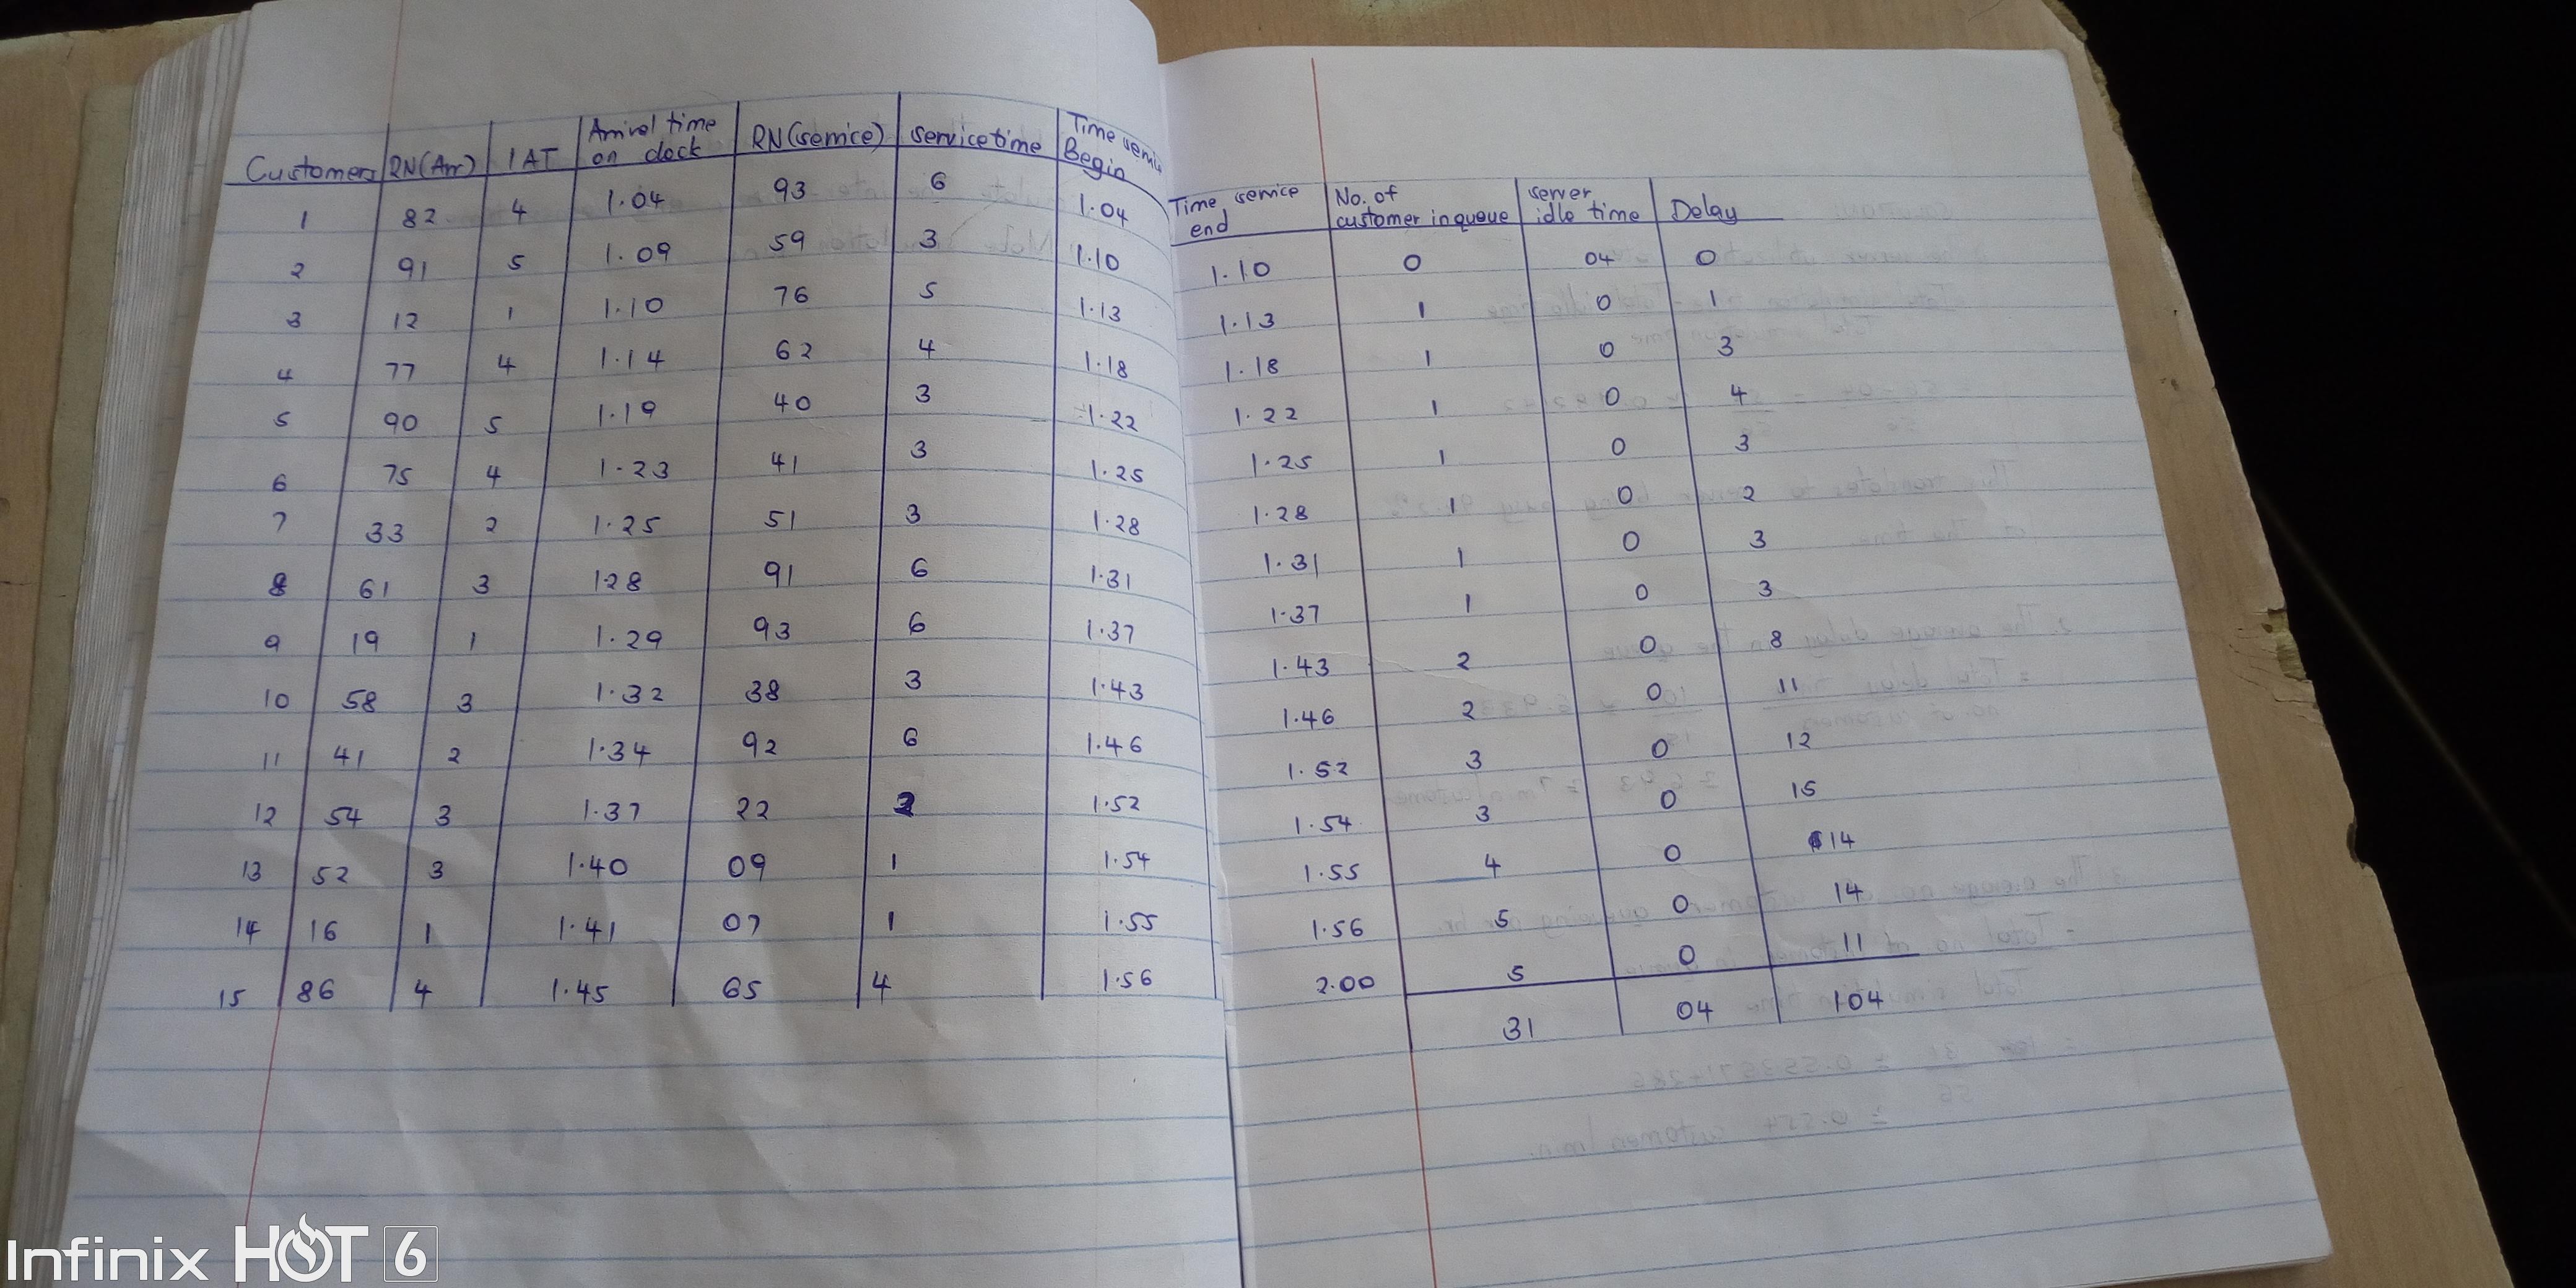 Customers RN(Arr) IAT Arrival time on clock RN(service) service time Time service Begin
1 82 4 1.04 93 6 1.04
2 91 5 1.09 59 3 1.10
3 12 1 1.10 76 5 1.13
4 77 4 1.14 62 4 1.18
5 90 5 1.19 40 3 1.22
6 75 4 1.23 41 3 1.25
7 33 2 1.25 51 3 1.28
8 61 3 1.28 91 6 1.31
9 19 1 1.29 93 6 1.37
10 58 3 1.32 38 3 1.43
11 41 2 1.34 92 6 1.46
12 54 3 1.37 22 2 1.52
13 52 3 1.40 09 1 1.54
14 16 1 1.41 07 1 1.55
15 86 4 1.45 65 4 1.56
Time service end No. of customer in queue server idle time Delay
1.10 0 04 0
1.13 1 0 1
1.18 1 0 3
1.22 1 0 4
1.25 1 0 3
1.28 1 0 2
1.31 1 0 3
1.37 1 0 3
1.43 2 0 8
1.46 2 0 11
1.52 3 0 12
1.54 3 0 15
1.55 4 0 14
1.56 5 0 14
2.00 5 0 11
31 04 104
Infinix HOT 6